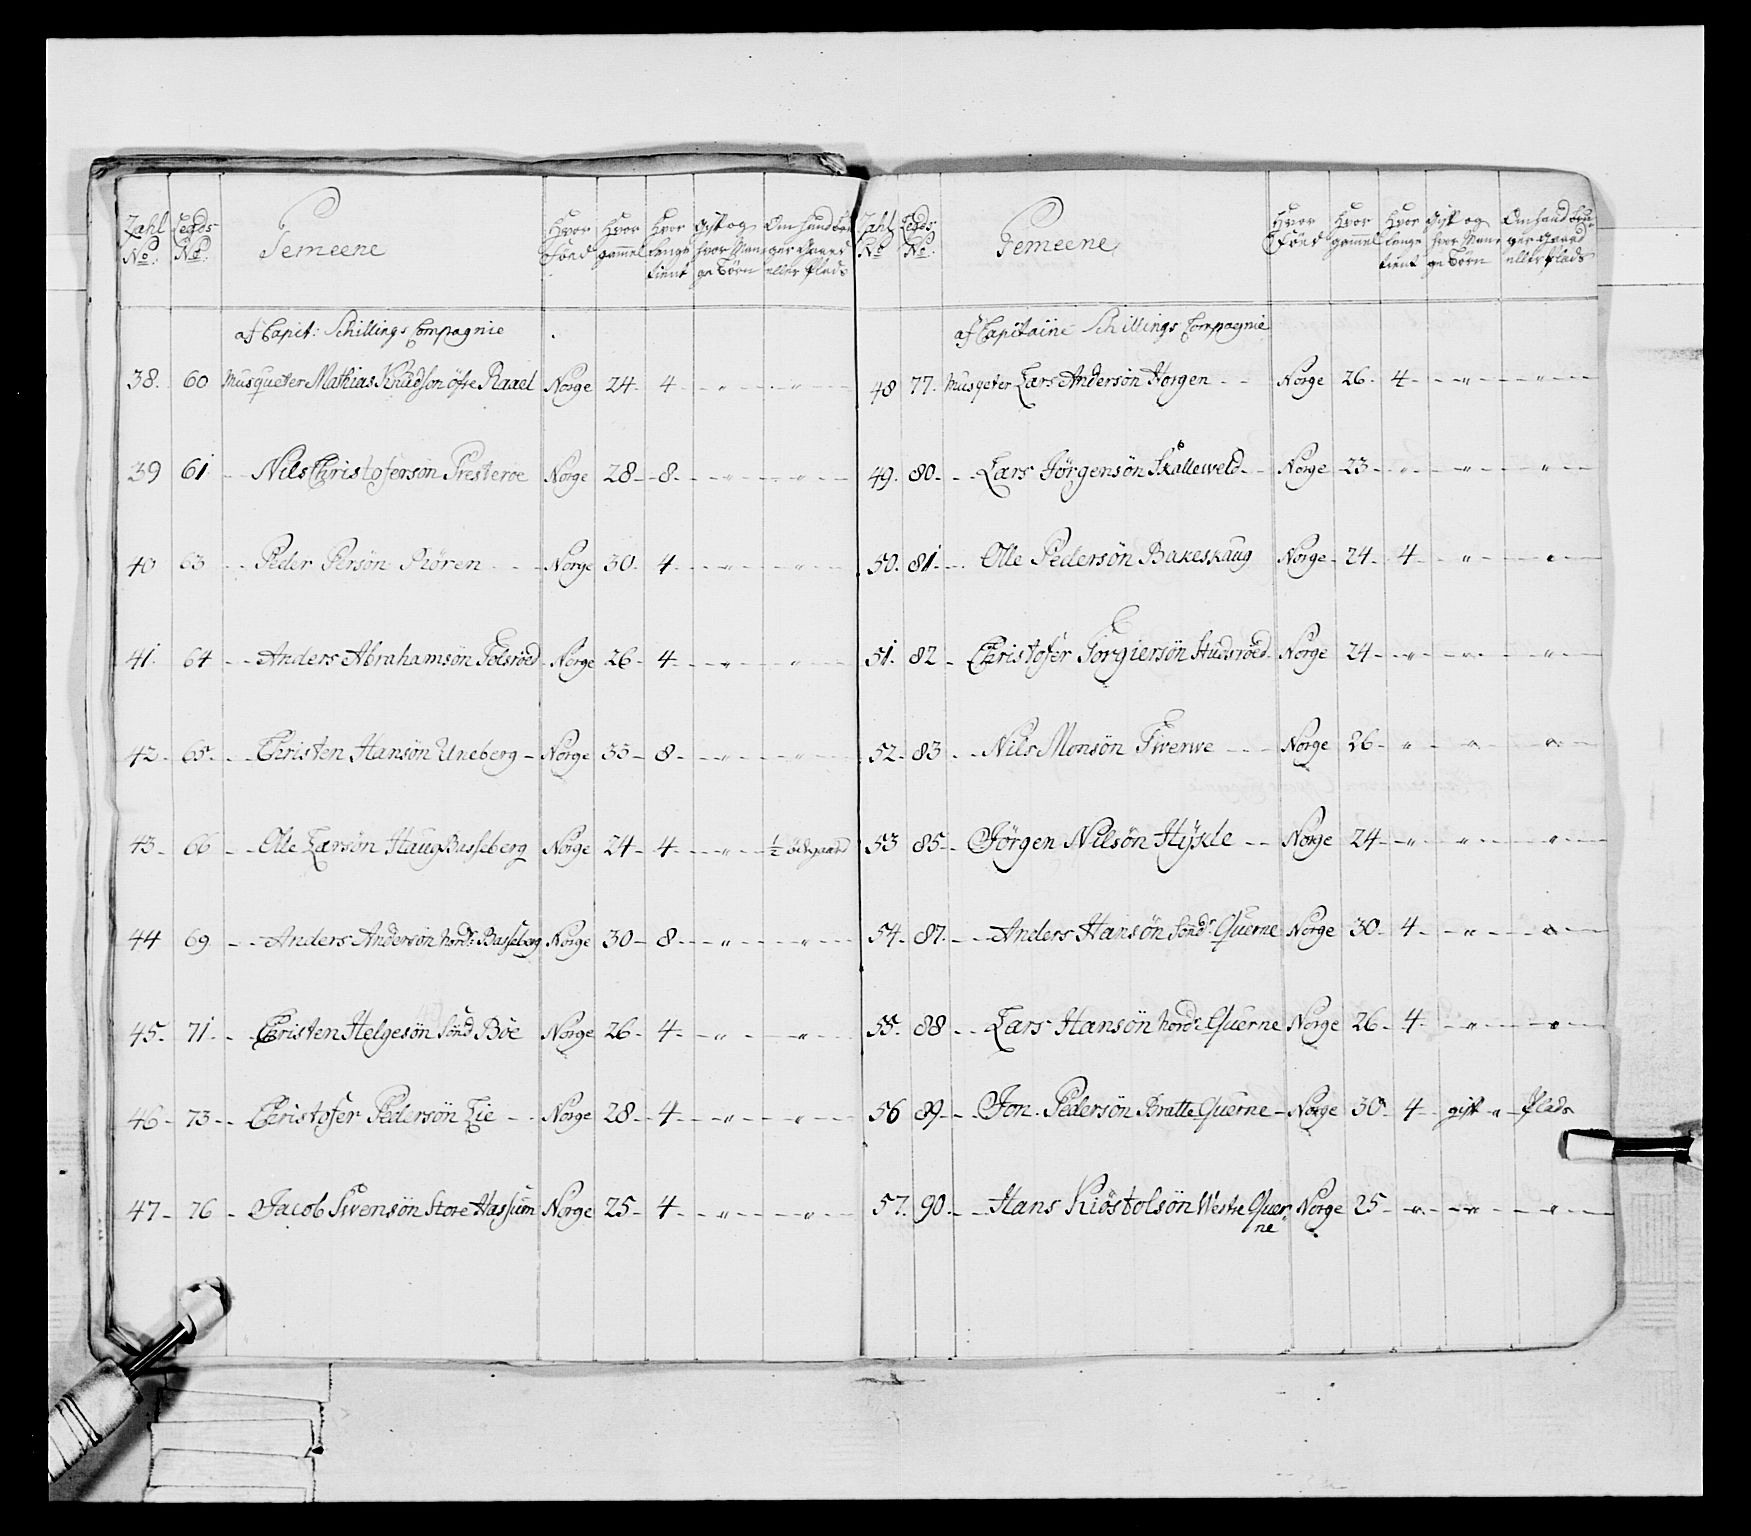 Zahl No. Legds No. Gemeene Hvor Föed Hvor gammel Hvor lenge tient Gift og hvor Mange Börn Om hand bruger Gaard eller Plads
af Capit: Schillings Compagnie
38. 60 Musqueter Mathias Knudsön öfre Raael Norge 24. 4 - " - " -
39 61 - Nils Christofersön Presteroe Norge 28 - 8 - " - " -
40 63 - Peder Persön Rören - Norge 30. 4. - " - " -
41. 64 - Anders Abrahamsön Tolsröed Norge 26 - 4 - " - " -
42. 65. - Christen Hansön Uneberg - Norge 33 - 8 - " - " -
43. 66 - Olle Larsön Haug Basseberg Norge 24 - 4 - " - ½ ödegaard
44 69 - Anders Andersön Nordr Basseberg Norge 30 - 8 - " - " -
45. 71. - Christen Helgesön Sönd Böe Norge 26 - 4 - " - " -
46 - 73 - Christofer Pedersön Lie - Norge 28 - 4 - " - " -
47 - 76 - Jacob Svensön Store Hassum Norge 25 - 4 - " - " -
Zahl No Legds No. Gemeene Hvor Föed Hvor gamel Hvor lenge tient Gift og hvor Mange Börn Om hand bruger Gaard eller Plads
af Capitaine Schillings Compagnie
48 77. Musqeter Lars Andersön Horgen - - Norge 26 - 4 - " - " -
49. 80. - Lars Jörgensön Skalleveld - Norge 23 - " - " - " -
50. 81. - Olle Pedersön Bakeskaug Norge - 24 - 4 - " - " -
51. 82 - Christofer Torgiersön Hudsröed Norge 24 - " - " - " -
52. 83 - Nils Monsön Tverve - - Norge 26 - " - " - " -
53 85 - Jörgen Nilsön Hykle - - Norge 24 - " - " - " -
54. 87. - Anders Hansön Söndr Querne Norge 30. 4 - " - " -
55. 88 - Lars Hansön Nordr Querne Norge 26 - 4 - " - " -
56 89 - Jon Pedersön Bratte Querne - Norge 30 4 gift " - Plads
57. 90 - Hans Kiöstolsön Westre Querne Norge 25 - " - " - " -